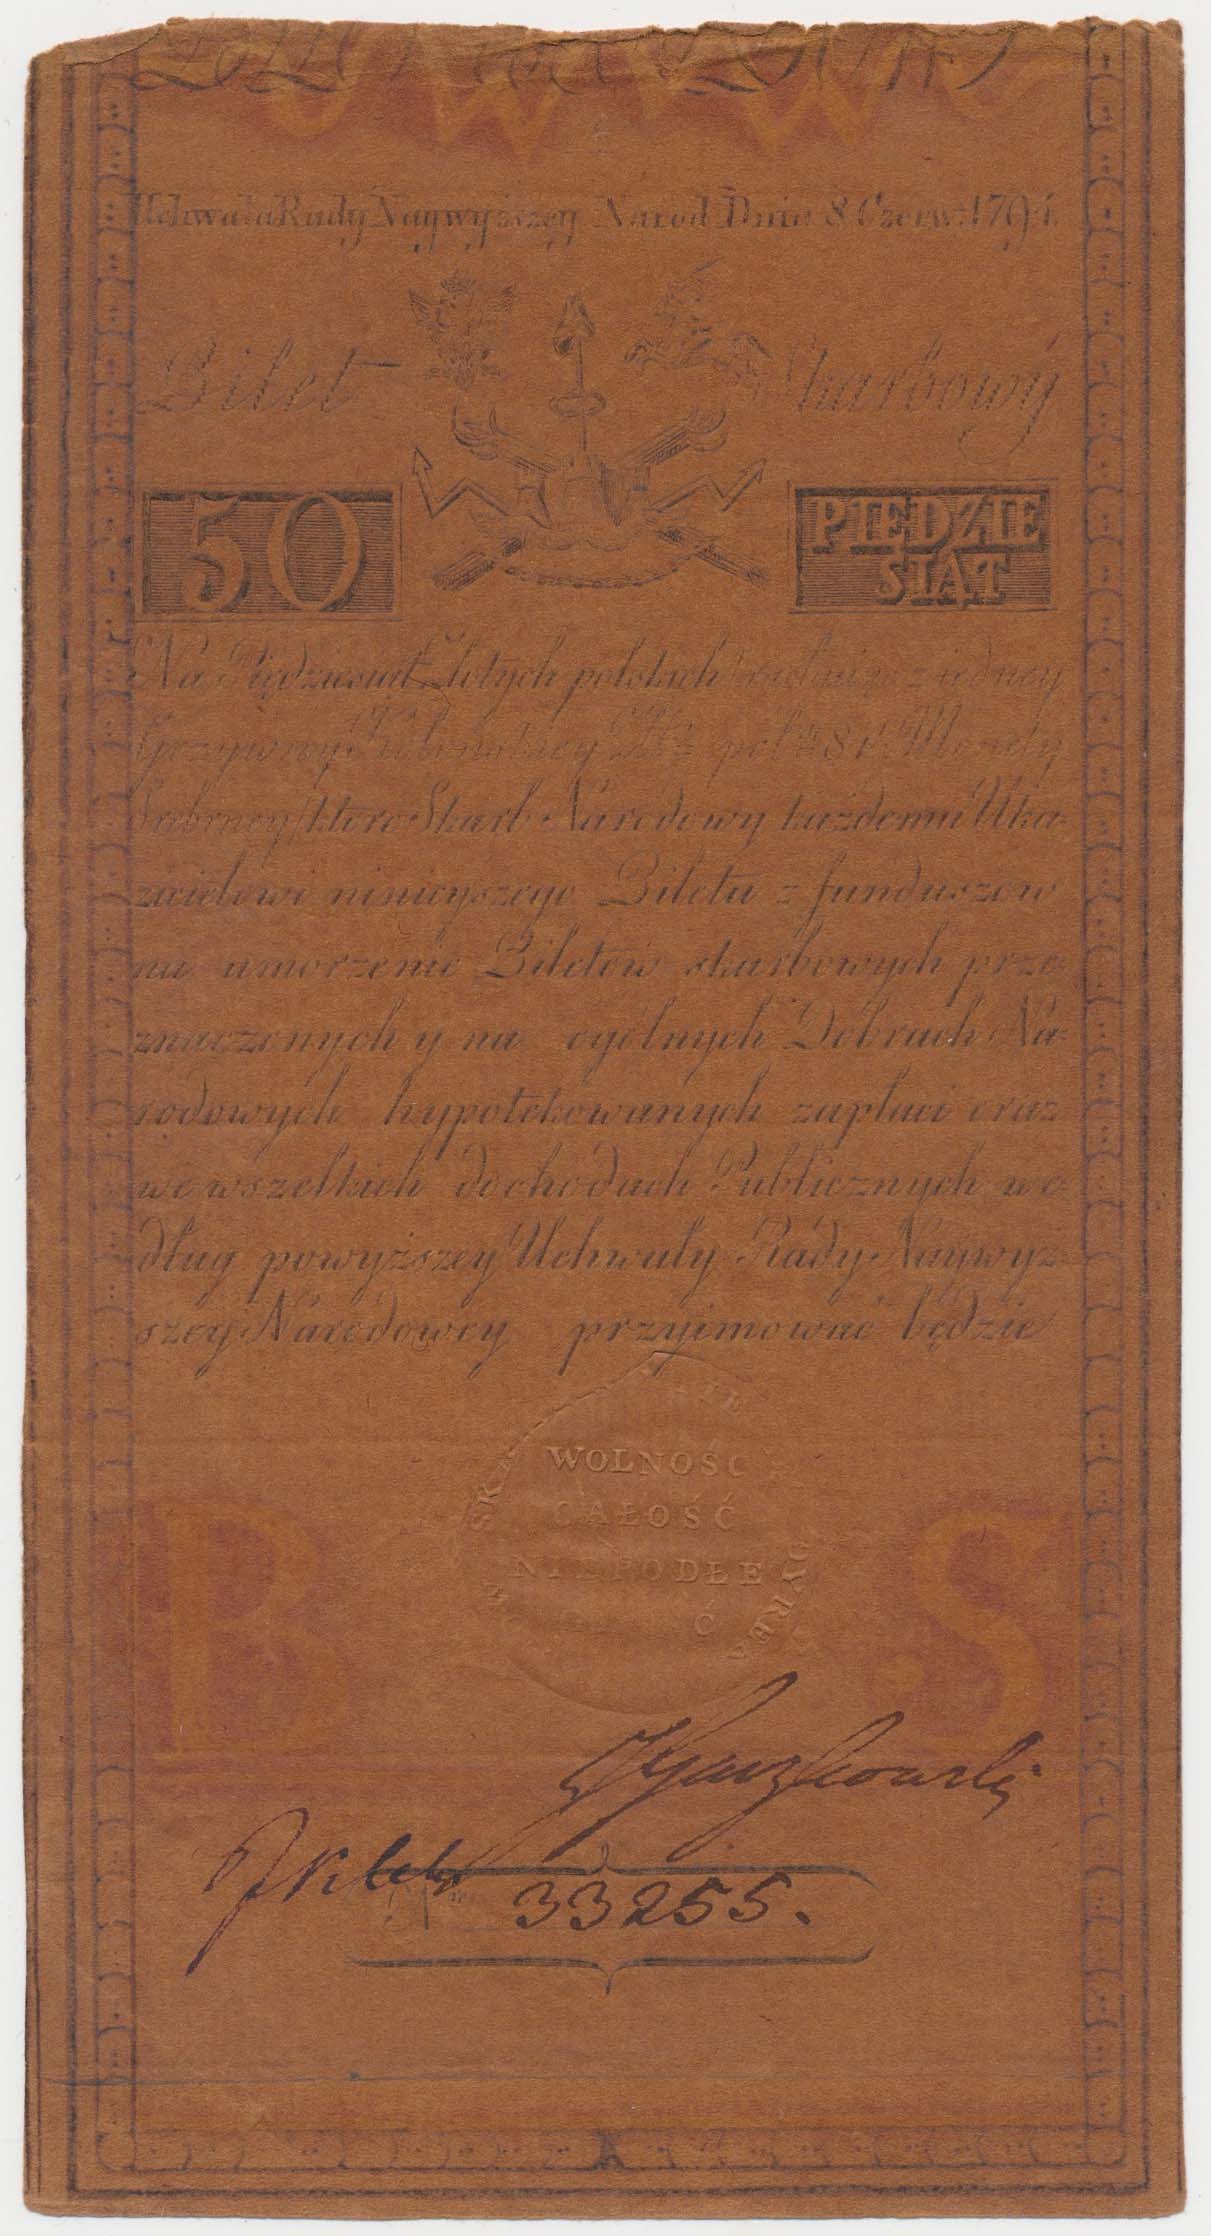 Uchwała Rady Naywyższey Narod Dnia 8 Czerw: 1794.
Bilet Skarbowy
50 PIĘDZIE
SIĄT
Na Pięćdziesiąt Złotych polskich rachuiąc z iedney
Grzywny Kolońskiey pol: Monety
Srebrney/ które Skarb Narodowy każdemu Uka:
zicielowi ninieyszego Biletu z funduszow
na umorzenie Biletow skarbowych prze:
znaczonych y na ogolnych Dobrach Na:
rodowych hypotekowanych zapłaci oraz
we wszelkich dochodach Publicznych we:
dług powyższey Uchwały Rady Naywyż:
szey Narodowey przyimować będzie
WOLNOŚĆ
CAŁOŚĆ
NIEPODLE
B S
33255.
A